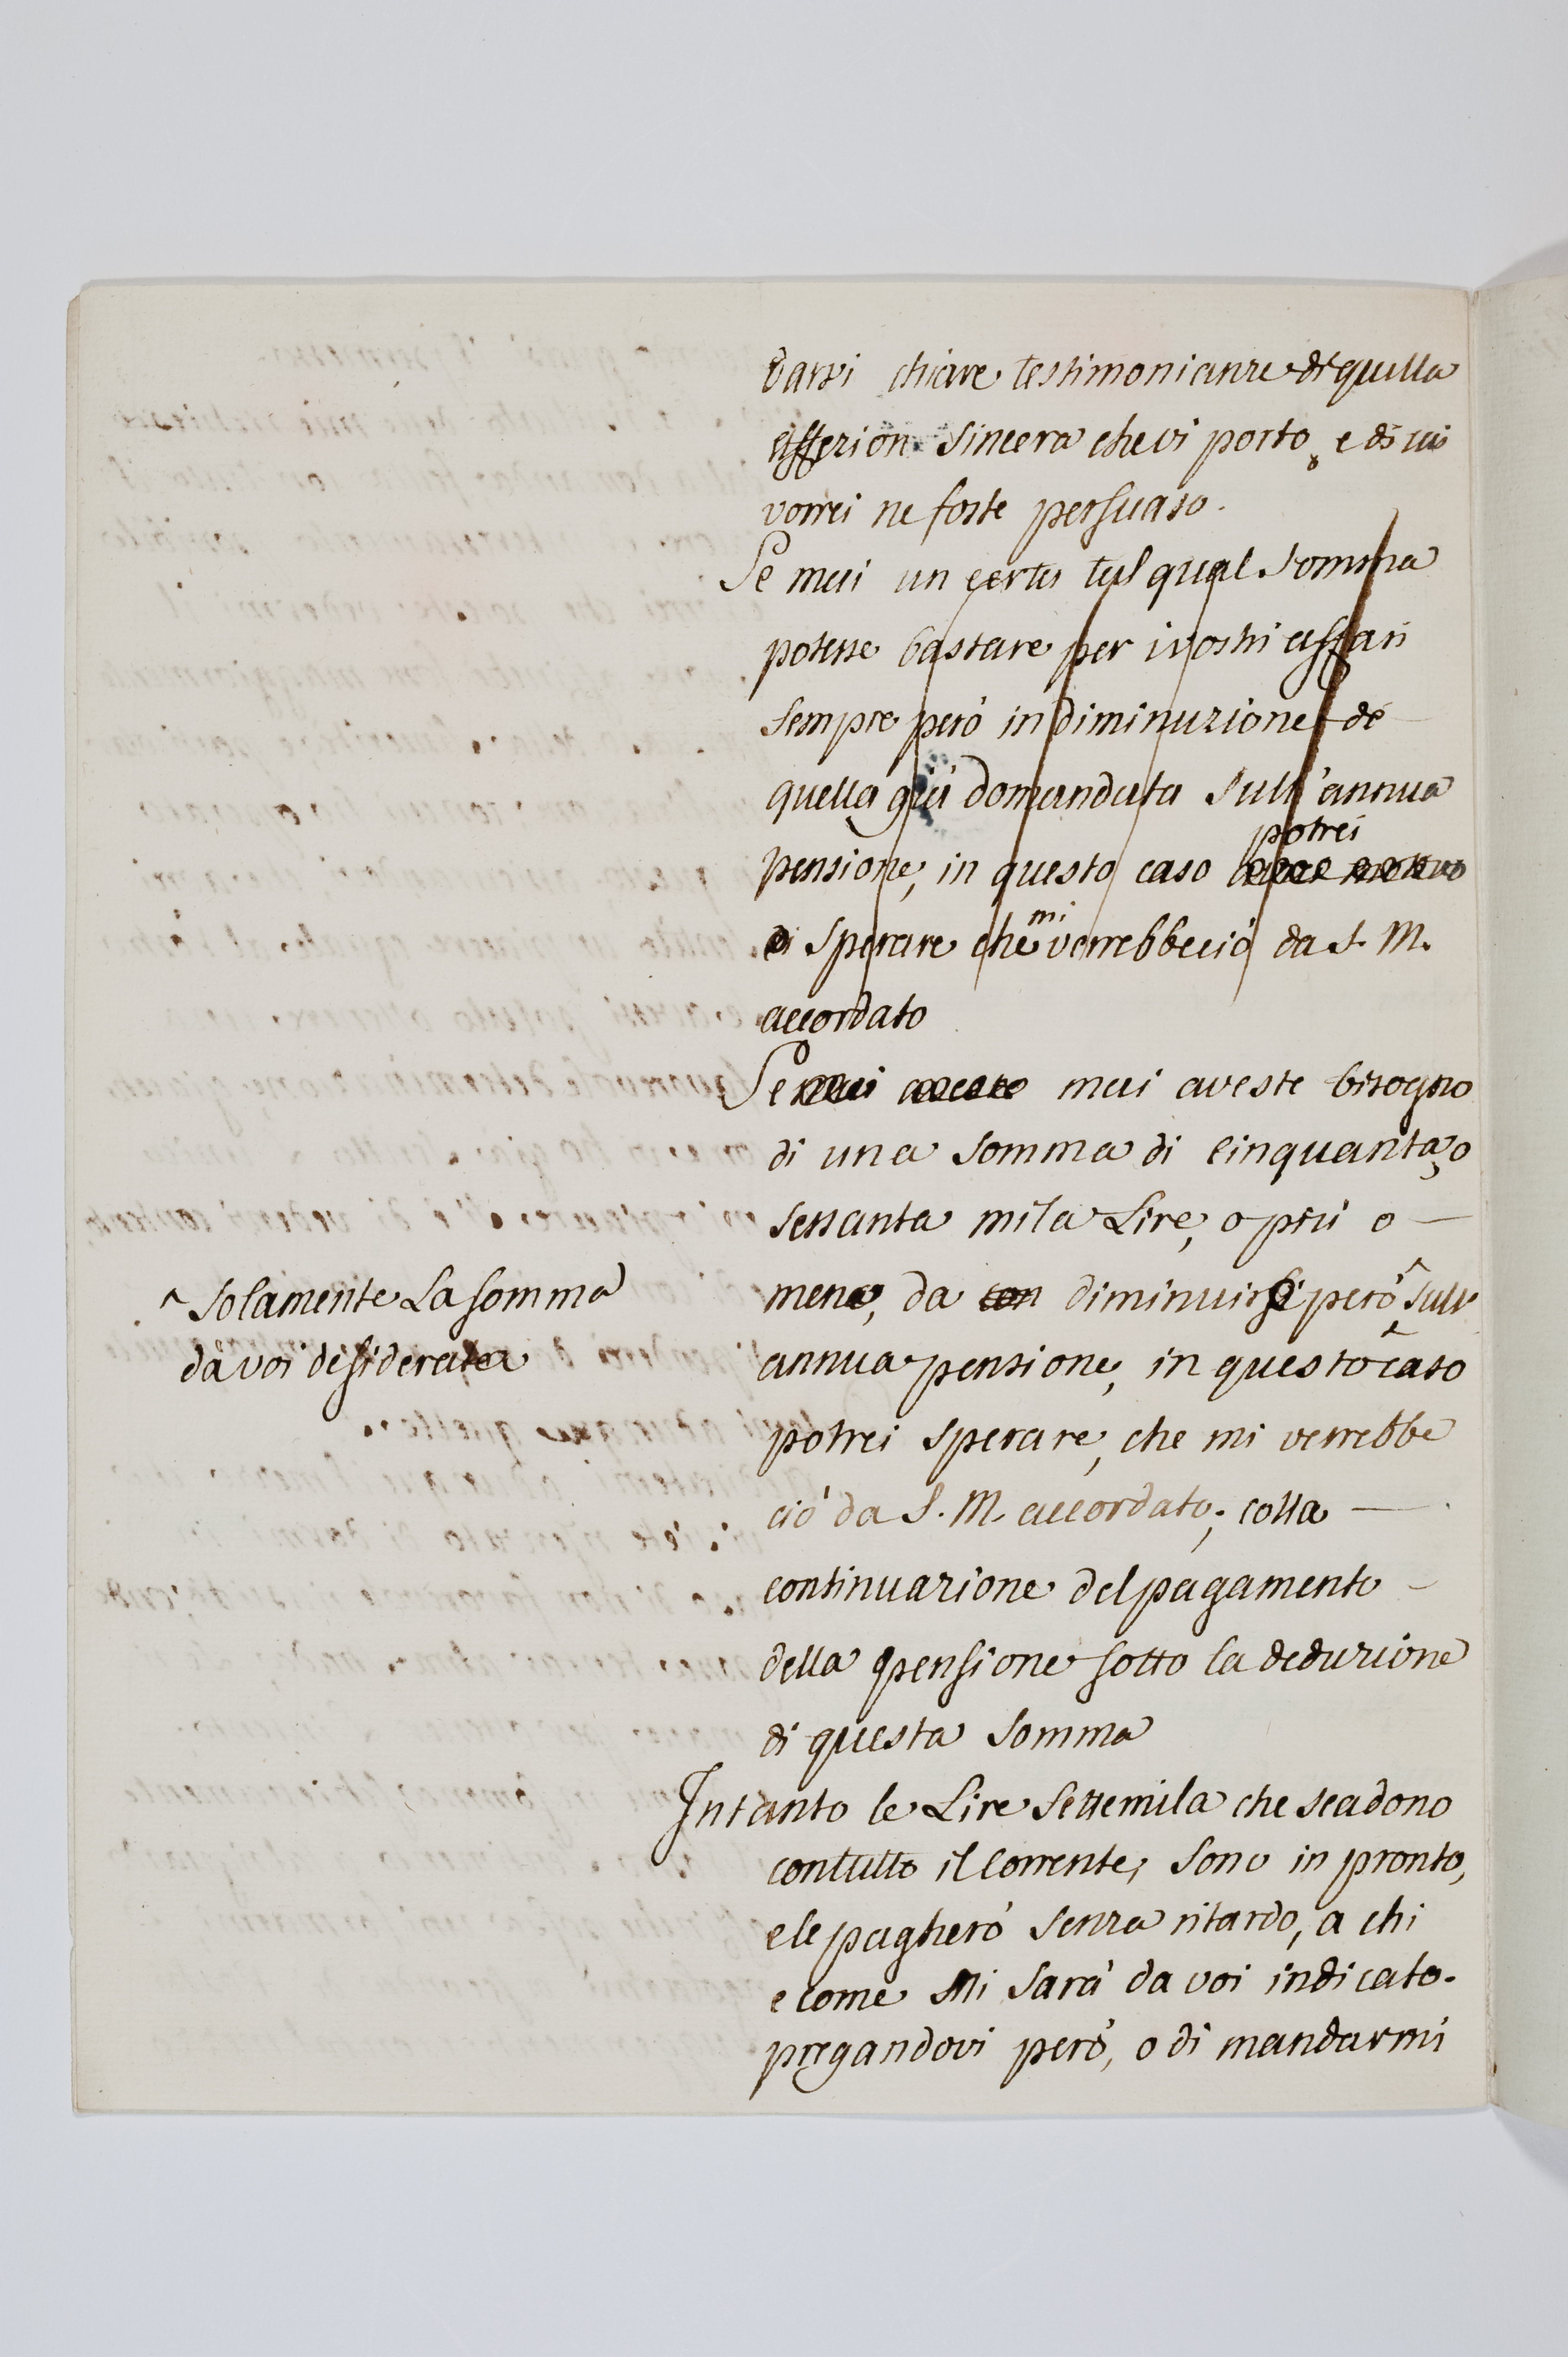 darvi chiare testimonianze di quella
affezion sincera che vi porto, e di cui
vorrei ne foste persuaso.
Se mai un certo tal qual somma
potesse bastare per i vostri affari
sempre però in diminuzione de
quella già domandata sull'annua
potrei
pensione, in questo caso
di sperare che mi verrebbe ciò da S. M.
accordato
Se mai aveste bisogno
di una somma di cinquanta, o
sessanta mila Lire, o più o
meno, da con diminuirsi però ^ sull'
^ solamente la somma
da voi desiderata
annua pensione, in questo caso
potrei sperare, che mi verrebbe
ciò da S. M. accordato; colla
continuazione del pagamento
della pensione sotto la deduzione
di questa somma
Intanto le Lire Settemila che scadono
con tutto il Corrente, sono in pronto,
e le pagherò senza ritardo, a chi
e come Mi sarà da voi indicato.
pregandovi però, o di mandarmi